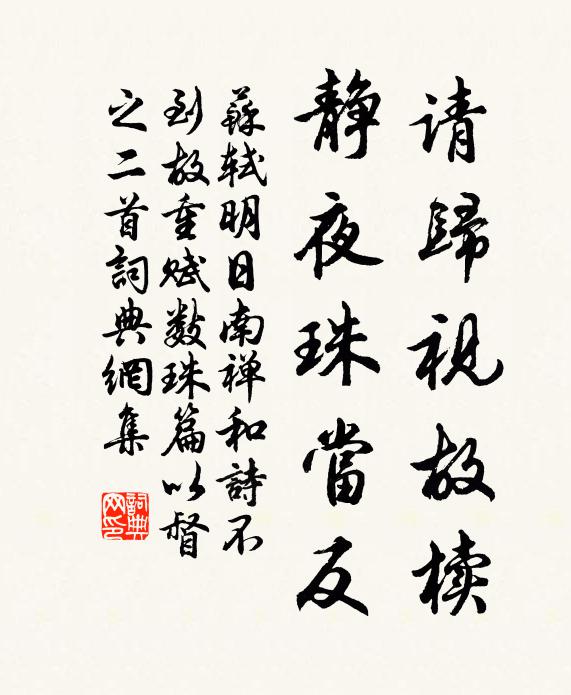 请歸視故櫝
静夜珠當反
蘇軾明日南禅和詩不
到故重赋数珠篇以督
之二首詞典網集
詞典网印